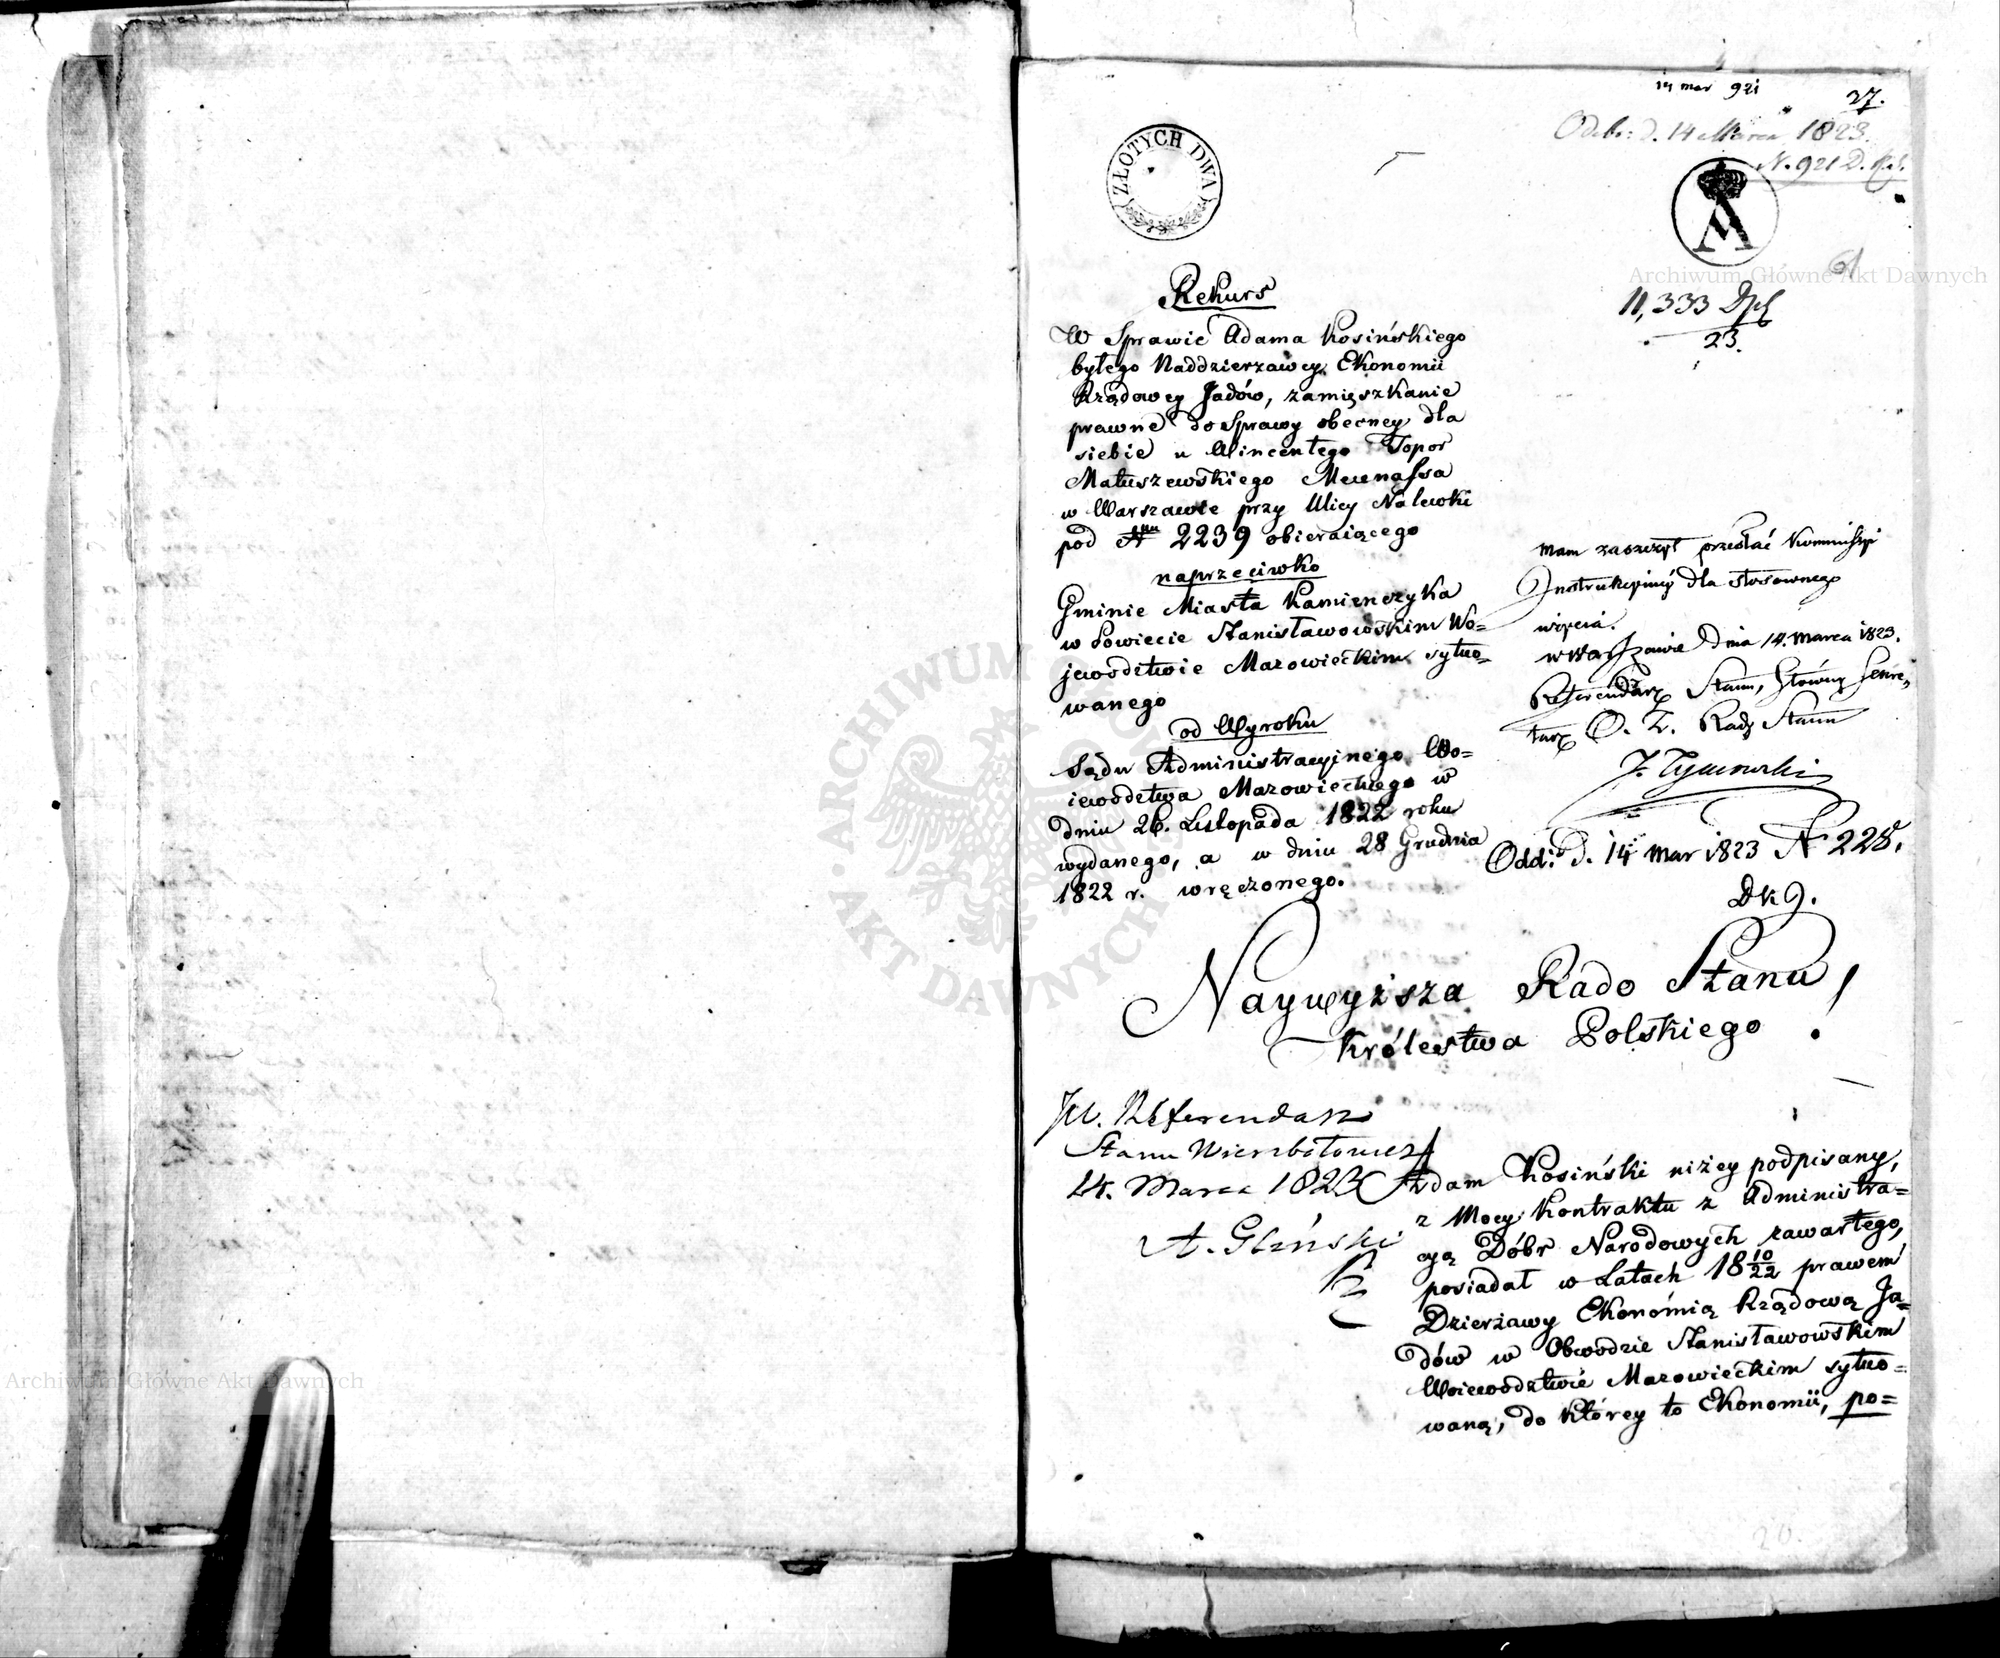 14 mar 921
27.
Odeb: d. 14 Marca 1823.
N. 921 D.
ZŁOTYCH DWA
11,333
23.
Rekurs
W Sprawie Adama Kosińskiego
byłego Naddzierzawcy Ekonomii
Rządowey Jadów, zamięszkanie
prawne do Sprawy obecney dla
siebie u Wincentego Topor
Matuszewskiego Mecenassa
w Warszawie przy Ulicy Nalewki
pod Nrm 2239 obieraiącego
naprzeciwko
Gminie Miasta Kamienczyka
w Powiecie Stanisławowskim Wo=
jewodztwie Mazowieckim sytuo=
wanego
od Wyroku
Sądu Administracyjnego Wo=
iewodztwa Mazowieckiego w
dniu 26. Listopada 1822 roku
wydanego, a w dniu 28 Grudnia
1822 r. wręczonego.
Mam zaszczyt przesłać Kommissyi
Instrukcyiney dla stosownego
użycia.
w Warszawie Dnia 14. Marca 1823.
Referendarz Stanu, Główny Sekre,
tarz O. Z. Rady Stanu
J. Tymowski
Odd: D. 14 Mar 1823 N 228.
DkJ.
Naywyższa Rado Stanu
Królestwa Polskiego !
JW. Referendarz
Stanu Wierzbołowicz
14. Marca 1823
A. Gliński
Adam Kosiński niżey podpisany,
z Mocy Kontraktu z Administra=
cyą Dóbr Narodowych zawartego,
posiadał w Latach 18 10/22 prawem
Dzierżawy Ekonomią Rządową Ja=
dów w Obwodzie Stanisławowskim
Woiewodztwie Mazowieckim sytuo=
waną, do którey to Ekonomii, po=
20.
ARCHIWUM GŁÓWNE AKT DAWNYCH
Archiwum Główne Akt Dawnych
Archiwum Główne Akt Dawnych